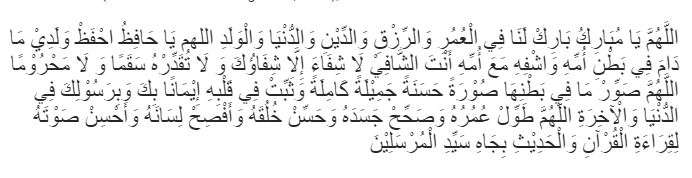 اللَّهُمَّ يَا مُبَارِكُ بَارِكْ لَنَا فِي الْعُمُرِ وَالرِّزْقِ وَالدِّيْنِ وَالدُّنْيَا وَالْوَلَدِ اللهم يَا حَافِظُ احْفَظْ وَلَدِيْ مَا
دَامَ فِي بَطْنِ أُمِّهِ وَاشْفِهِ مَعَ أُمِّه أَنْتَ الشَّافِيْ لَا شِفَاءَ إِلَّا شِفَاؤُكَ وَ لَا تُقَدِّرْهُ سَقَمًا وَ لَا مَحْرُوْمًا
اللَّهُمَّ صَوِّرْ مَا فِي بَطْنِهَا صُوْرَةً حَسَنَةً جَمِيْلَةً كَامِلَةً وَثَبِّتْ فِي قَلْبِهِ إِيْمَانًا بِكَ وَبِرَسُوْلِكَ فِي
الدُّنْيَا وَالْآخِرَةِ اللَّهُمَّ طَوِّلْ عُمُرُهُ وَصَحِّحْ جَسَدَهُ وَحَسِّنْ خُلُقَهُ وَأَفْصِحْ لِسَانَهُ وَأَحْسِنْ صَوْتَهُ
لِقِرَاءَةِ الْقُرْآنِ وَالْحَدِيْثِ بِجَاهِ سَيِّدِ الْمُرْسَلِيْنَ